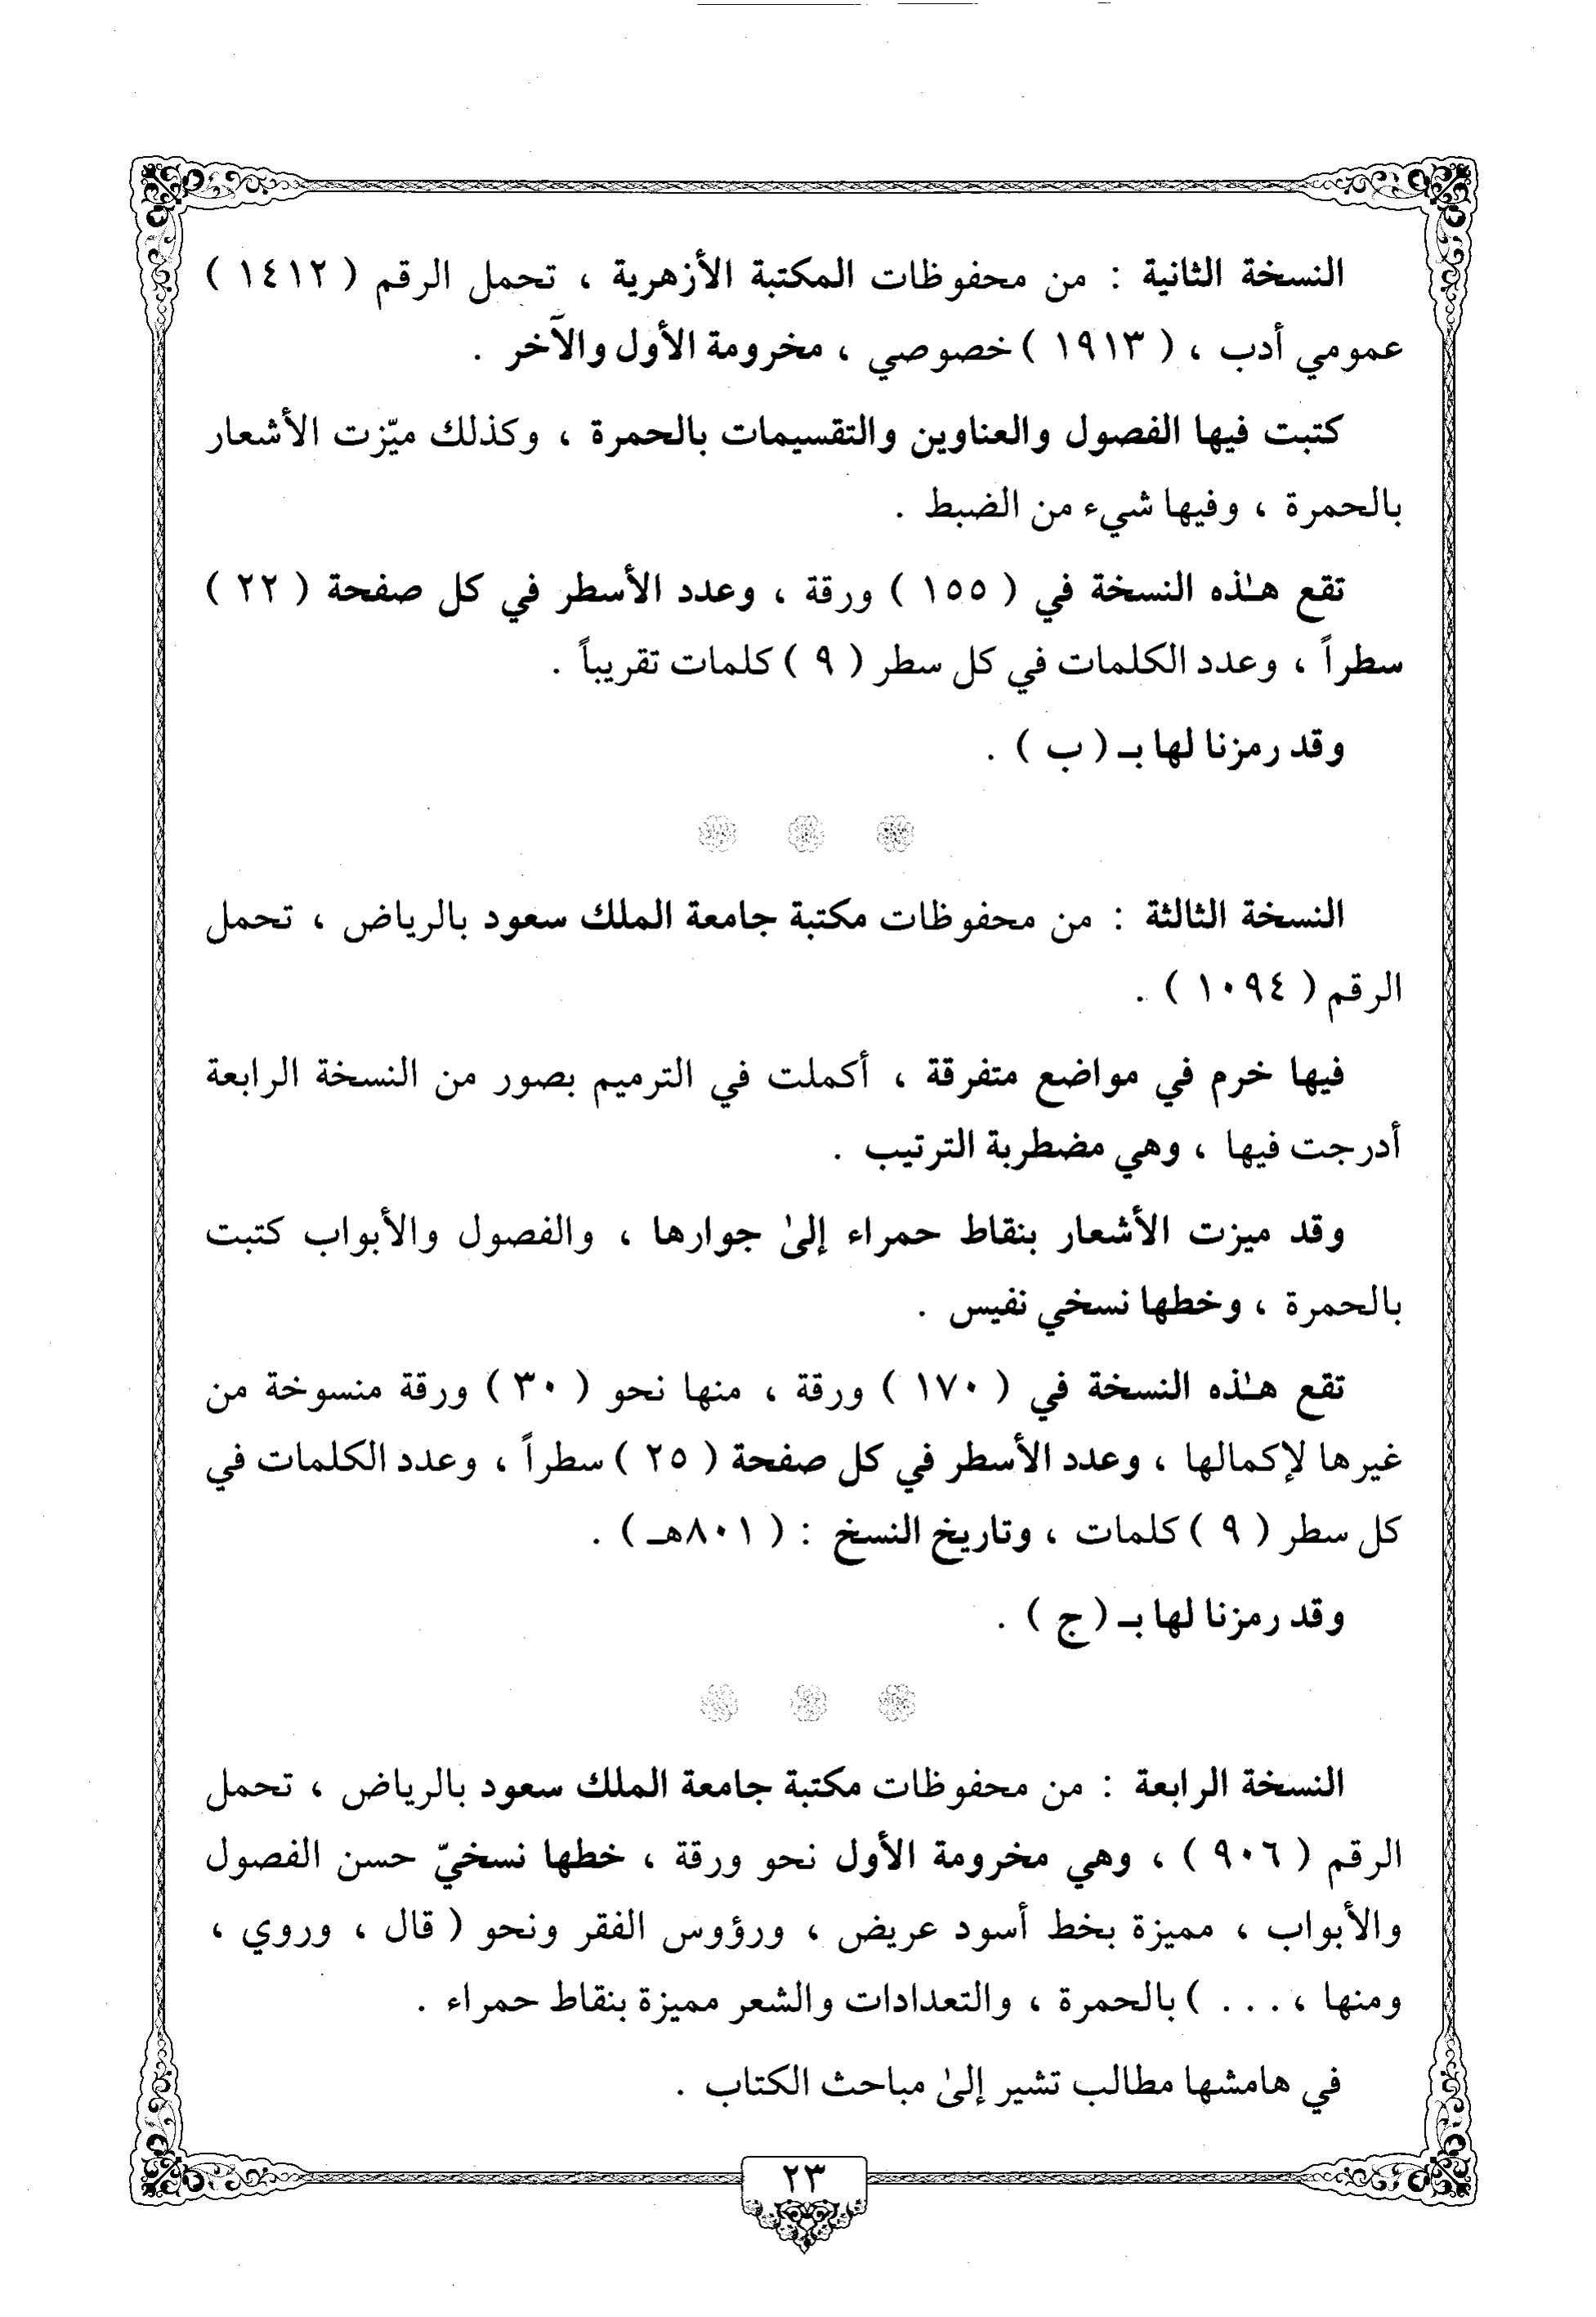 النسخة الثانية : من محفوظات المكتبة الأزهرية ، تحمل الرقم ( ١٤١٢ )
عمومي أدب ، ( ١٩١٣ ) خصوصي ، مخرومة الأول والآخر .
كتبت فيها الفصول والعناوين والتقسيمات بالحمرة ، وكذلك ميّزت الأشعار
بالحمرة ، وفيها شيء من الضبط .
تقع هـٰذه النسخة في ( ١٥٥ ) ورقة ، وعدد الأسطر في كل صفحة ( ٢٢ )
سطراً ، وعدد الكلمات في كل سطر ( ٩ ) كلمات تقريباً .
وقد رمزنا لها بـ ( ب ) .
النسخة الثالثة : من محفوظات مكتبة جامعة الملك سعود بالرياض ، تحمل
الرقم ( ١٠٩٤ ) .
فيها خرم في مواضع متفرقة ، أكملت في الترميم بصور من النسخة الرابعة
أدرجت فيها ، وهي مضطربة الترتيب .
وقد ميزت الأشعار بنقاط حمراء إلىٰ جوارها ، والفصول والأبواب كتبت
بالحمرة ، وخطها نسخي نفيس .
تقع هـٰذه النسخة في ( ١٧٠ ) ورقة ، منها نحو ( ٣٠ ) ورقة منسوخة من
غيرها لإكمالها ، وعدد الأسطر في كل صفحة ( ٢٥ ) سطراً ، وعدد الكلمات في
كل سطر ( ٩ ) كلمات ، وتاريخ النسخ : ( ٨٠١هـ ) .
وقد رمزنا لها بـ ( ج ) .
النسخة الرابعة : من محفوظات مكتبة جامعة الملك سعود بالرياض ، تحمل
الرقم ( ٩٠٦ ) ، وهي مخرومة الأول نحو ورقة ، خطها نسخيّ حسن الفصول
والأبواب ، مميزة بخط أسود عريض ، ورؤوس الفقر ونحو ( قال ، وروي ،
ومنها ، . . . ) بالحمرة ، والتعدادات والشعر مميزة بنقاط حمراء .
في هامشها مطالب تشير إلىٰ مباحث الكتاب .
٢٣